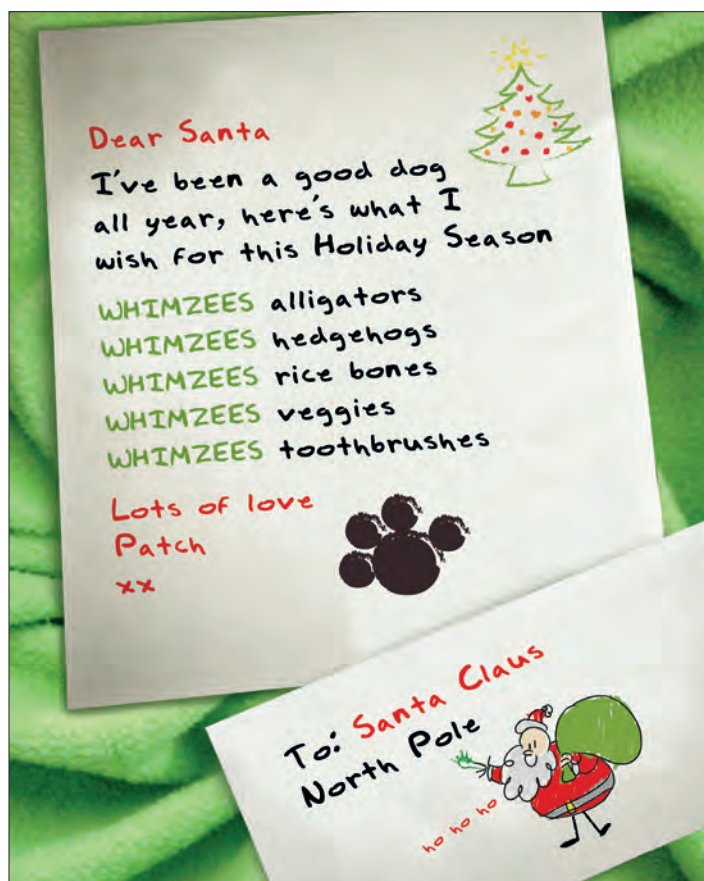 Dear Santa
I've been a good dog
all year, here's what I
wish for this Holiday Season
WHIMZEES alligators
WHIMZEES hedgehogs
WHIMZEES rice bones
WHIMZEES veggies
WHIMZEES toothbrushes
Lots of love
Patch
xx
To: Santa Claus
North Pole
ho ho ho